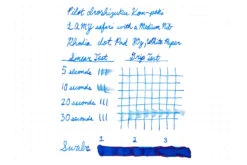 Pilot Iroshizuku Kon-peki
LAMY safari with a Medium Nib
Rhodia dot Pad 80g White Paper
Smear Test Drip Test
5 seconds
10 seconds
20 seconds
30 seconds
1 2 3
Swabs